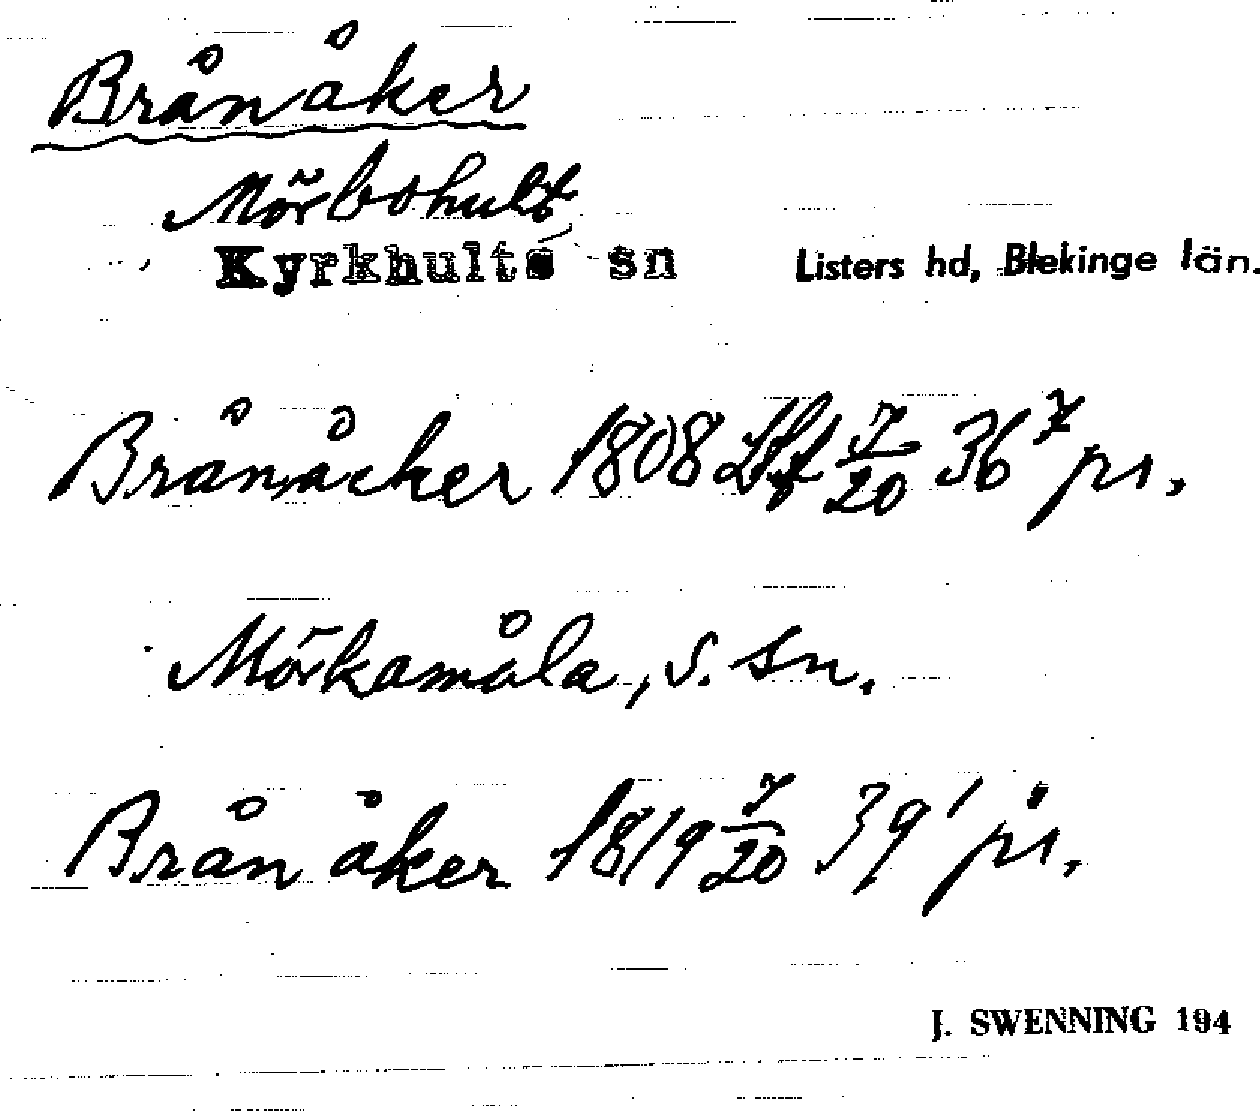 Brånåker
Mörbohult
Kyrkhults sn Listers hd, Blekinge län.
Brånåcker 1808 Lfl 7/20 36⁷ pr.
Mörkamåla, s. sn.
Brånåker 1819 7/20 39¹ pr.
J. SWENNING 194